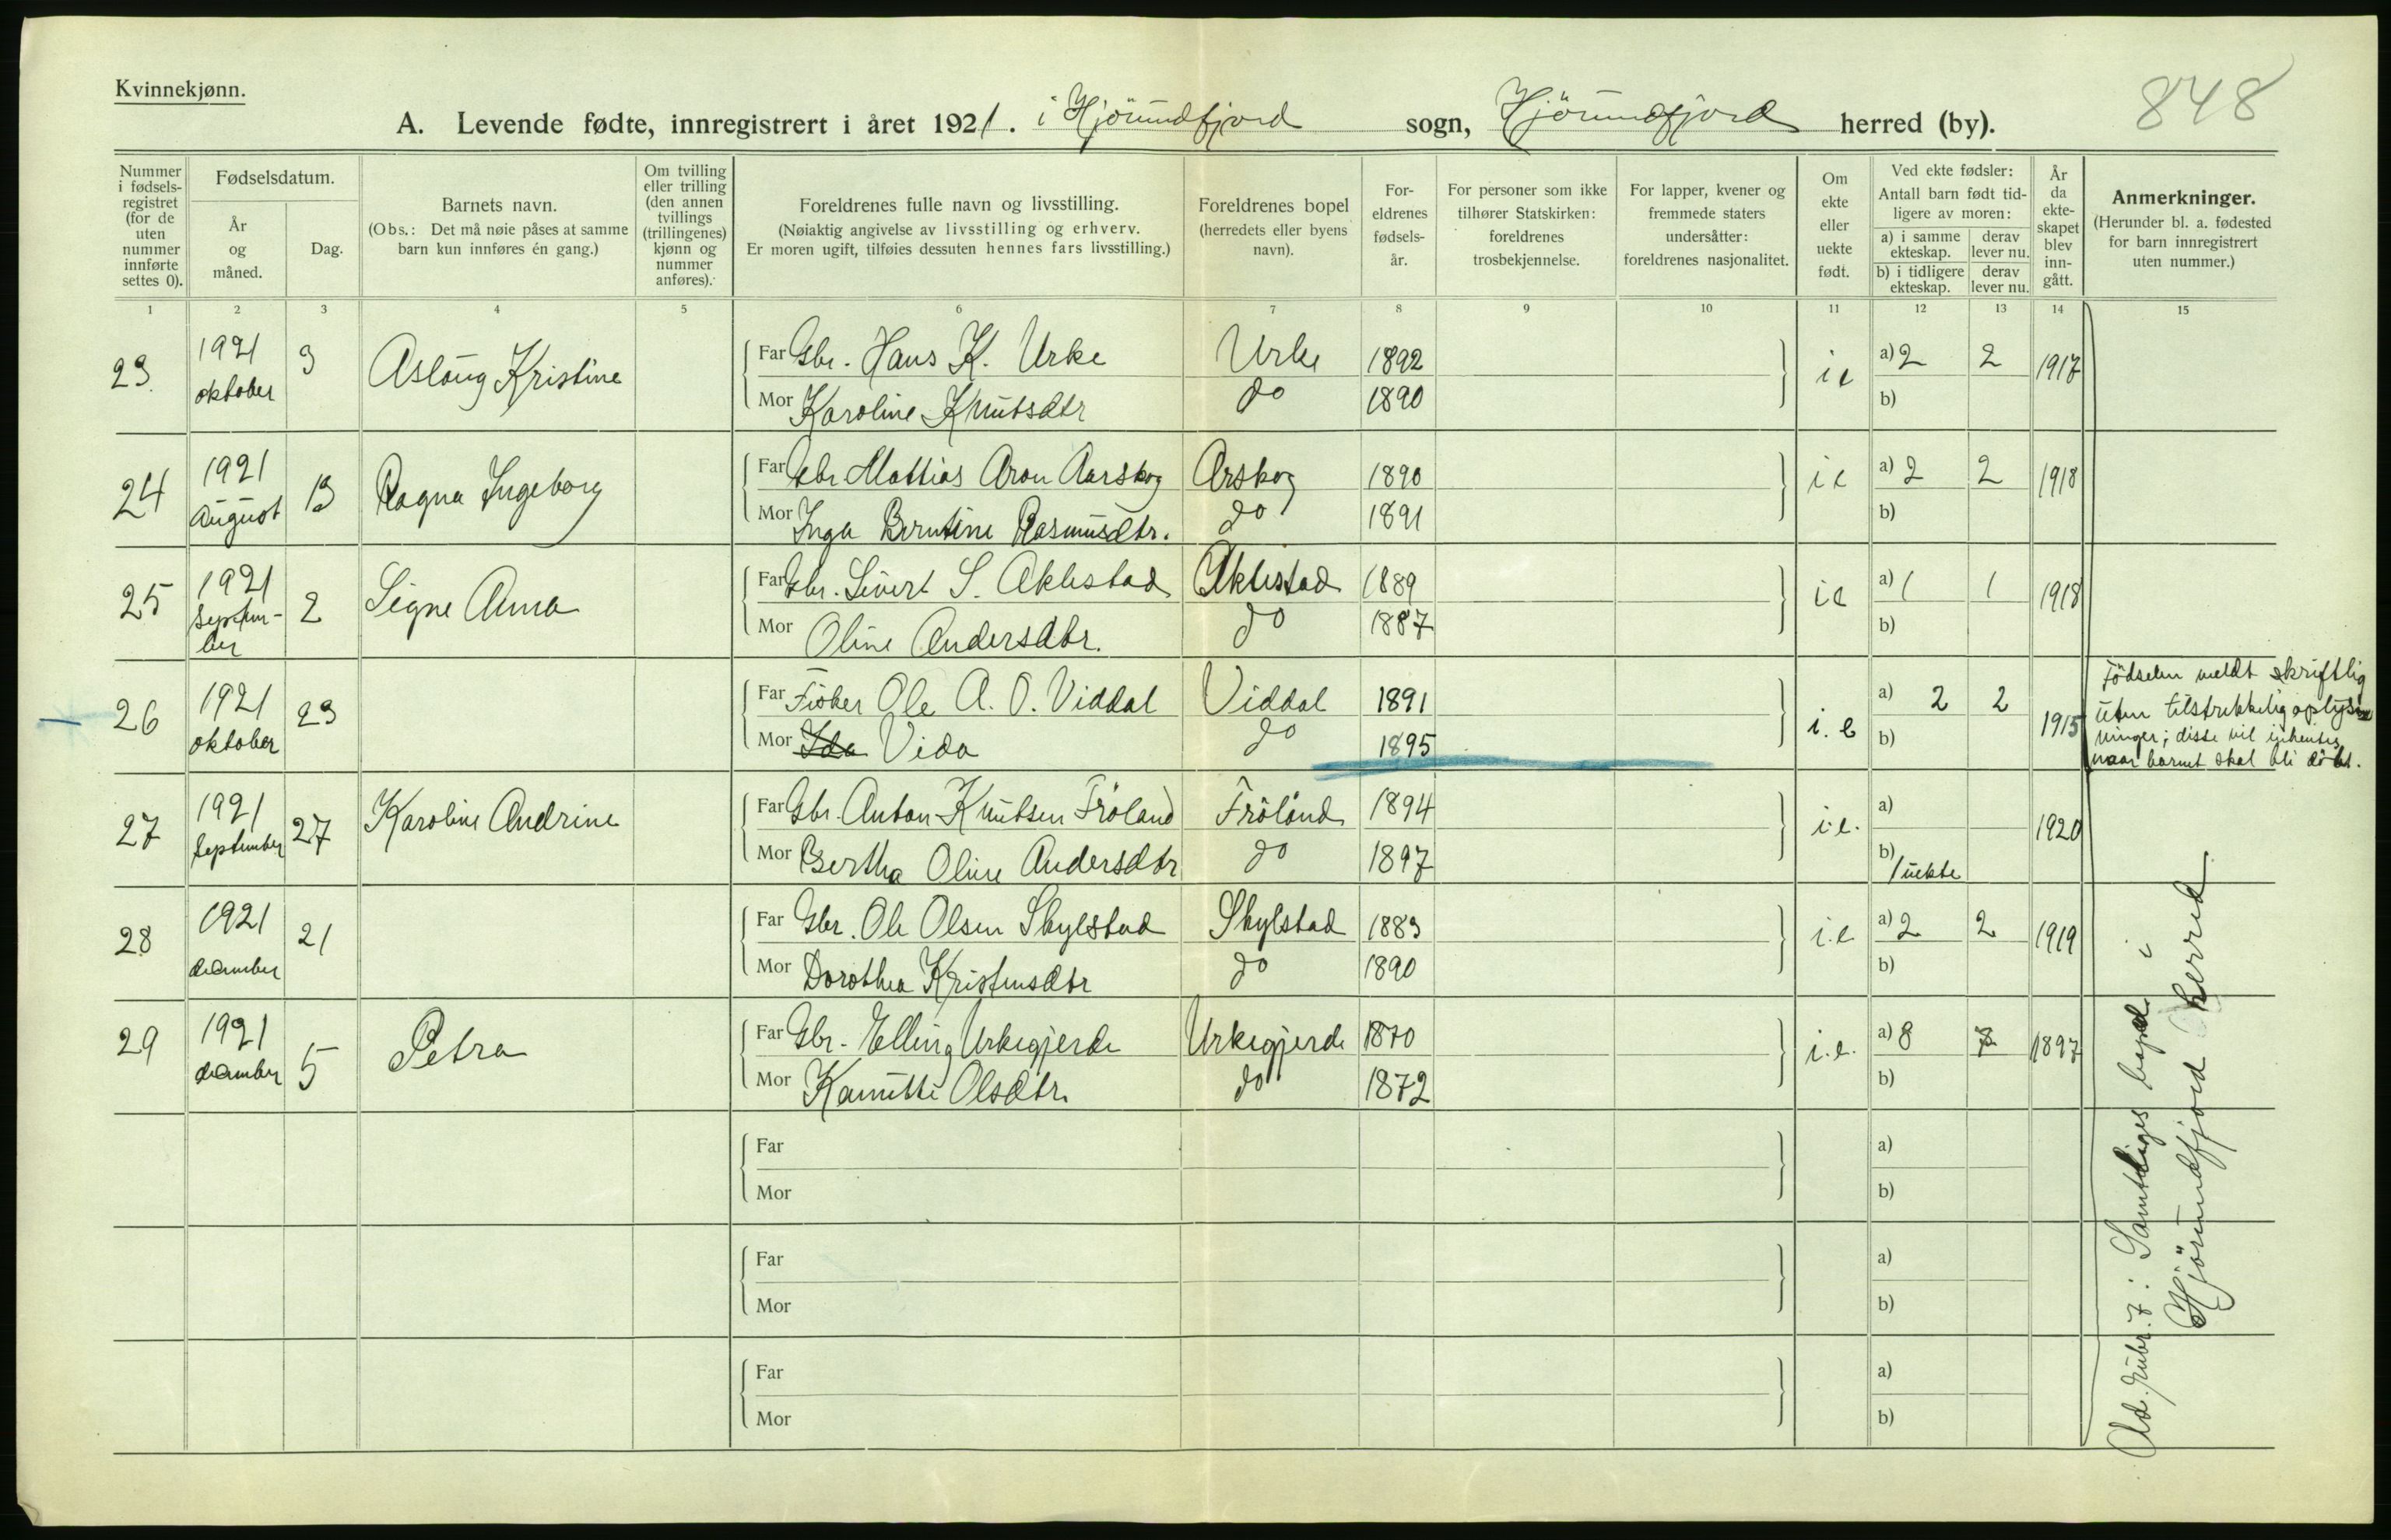 Kvinnekjønn.
848
A. Levende fødte, innregistrert i året 1921. i Hjörundfjord sogn, Hjörundfjord herred (by).
Nummer i fødsels-registret (for de uten nummer innførte settes 0).
Fødselsdatum.
År og måned.
Dag.
Barnets navn.
(Obs.: Det må nøie påses at samme barn kun innføres én gang.)
Om tvilling eller trilling (den annen tvillings (trillingenes) kjønn og nummer anføres).
Foreldrenes fulle navn og livsstilling.
(Nøiaktig angivelse av livsstilling og erhverv.
Er moren ugift, tilføies dessuten hennes fars livsstilling.)
Foreldrenes bopel (herredets eller byens navn).
For-eldrenes fødsels-år.
For personer som ikke tilhører Statskirken: foreldrenes trosbekjennelse.
For lapper, kvener og fremmede staters undersåtter: foreldrenes nasjonalitet.
Om ekte eller uekte født.
Ved ekte fødsler:
Antall barn født tid-ligere av moren:
a) i samme ekteskap.
derav lever nu.
b) i tidligere ekteskap.
derav lever nu.
År da ekte-skapet blev inn-gått.
Anmerkninger.
(Herunder bl. a. fødested for barn innregistrert uten nummer.)
1 2 3 4 5 6 7 8 9 10 11 12 13 14 15
23. 1921 oktober 3 Aslöug Kristine
Far Gbr. Hans K. Urke Urke 1892 ie a) 2 2 1917
Mor Karoline Knutsdtr do 1890 b)
24 1921 August 13 Ragna Ingeborg
Far Gbr Mattias Aron Aarskog Arskog 1890 ie a) 2 2 1918
Mor Inga Berntine Rasmusdtr. do 1891 b)
25 1921 September 2 Signe Anna
Far Gbr. Sivert S. Aklestad Aklestad 1889 ie a) 1 1 1918
Mor Oline Andersdtr. do 1887 b)
26 1921 oktober 23
Far Fisker Ole A. O. Viddal Viddal 1891 i.e a) 2 2 1915
Mor Ida Vida do 1895 b)
Födselen meldt skriftlig
uten tilstrekkelig oplys
ninger; disse vil inhentes
naar barnet skal bli döbt.
27 1921 September 27 Karoline Andrine
Far Gbr. Anton Knutsen Fröland Fröland 1894 i.e. a) 1920
Mor Bertha Oline Andersdtr do 1897 b) 1 uekte
28 1921 december 21
Far Gbr. Ole Olsen Skylstad Skylstad 1883 i.e a) 2 2 1919
Mor Dorothea Kristensdtr do 1890 b)
29 1921 december 5 Petra
Far Gbr. Elling Urkegjerde Urkegjerde 1870 i.e. a) 8 1897
Mor Kanutte Olsdtr. do 1872 b)
Far a)
Mor b)
Far a)
Mor b)
Far a)
Mor b)
Ad. rubr. 7: Samtliges bopæl i
Hjörundfjord herred